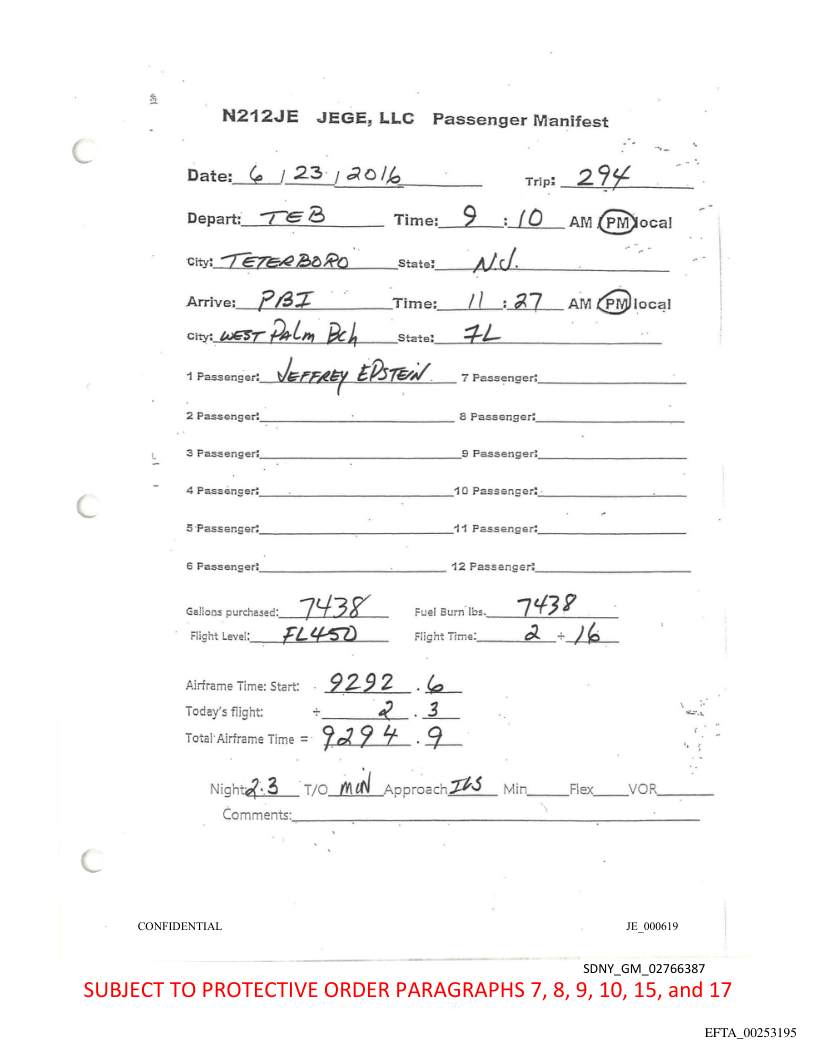 N212JE JEGE, LLC Passenger Manifest
Date: 6 / 23 / 2016 Trip: 294
Depart: TEB Time: 9 : 10 AM PM local
City: TETERBORO State: NJ.
Arrive: PBI Time: 11 : 27 AM PM local
City: WEST PALM BCh State: FL
1 Passenger: JEFFREY EPSTEIN 7 Passenger:
2 Passenger: 8 Passenger:
3 Passenger: 9 Passenger:
4 Passenger: 10 Passenger:
5 Passenger: 11 Passenger:
6 Passenger: 12 Passenger:
Gallons purchased: 7438 Fuel Burn lbs. 7438
Flight Level: FL450 Flight Time: 2 + 16
Airframe Time: Start: 9292 . 6
Today's flight: + 2 . 3
Total Airframe Time = 9294 . 9
Night 2.3 T/O Approach ILS Min Flex VOR
Comments:
CONFIDENTIAL JE_000619
SDNY_GM_02766387
SUBJECT TO PROTECTIVE ORDER PARAGRAPHS 7, 8, 9, 10, 15, and 17
EFTA_00253195